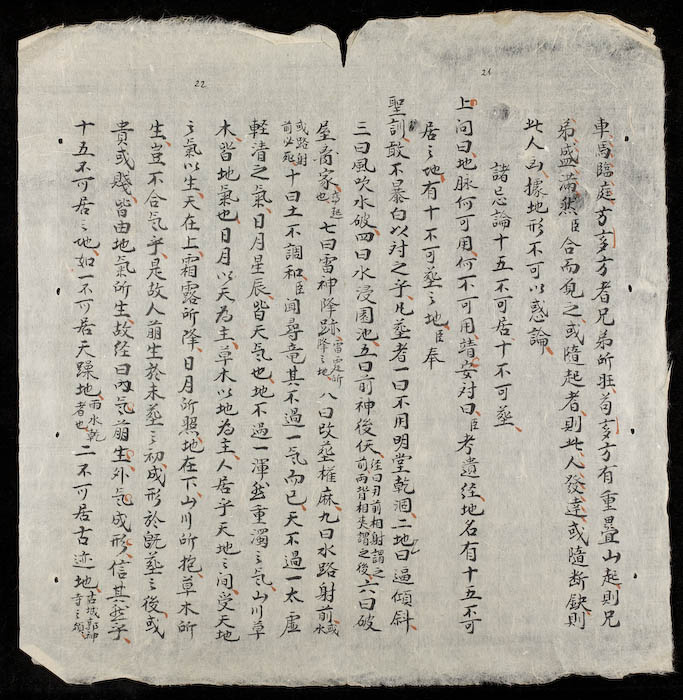 21
車馬臨庭方多方者兄弟所壯苟多方有重疊山起則兄
弟盛滿然臣合而覓之或隨起者則此人發達或隨斷缺則
此人凶據地形不可以惑論
諸忌論十五不可居十不可塟
上問曰地脉何可用何不可用靖安对曰臣考遺経地名有十五不可
居之地有十不可塟之地臣奉
聖訓敢不暴白以対之乎凡塟者一曰不用明堂乾涸二地曰逼傾斜
三曰風吹水破四曰水浸園池五曰前神後仸経曰刃前相射謂之前兩背相夹謂之後六曰破
22
屋喬家也七曰雷神降跡雷霆所降之地八曰改塟權麻九曰水路射前或水
或路射前必死十曰土不調和臣聞尋竜其不過一気而已天不過一太虛
輕清之気日月星辰皆天気也地不過一渾然重濁之気山川草
木皆地気也日月以天為主草木以地為主人居乎天地之间受天地
之気以生天在上霜露所降日月所照地在下山川所抱草木所
生豈不合気乎是故人萠生於未塟之初成形於既塟之後或
貴或賤皆由地気所生故経曰內気萠生外気成形信其然乎
十五不可居之地如一不可居天躁地雨水乾者也二不可居古迹地古城郭神寺之類